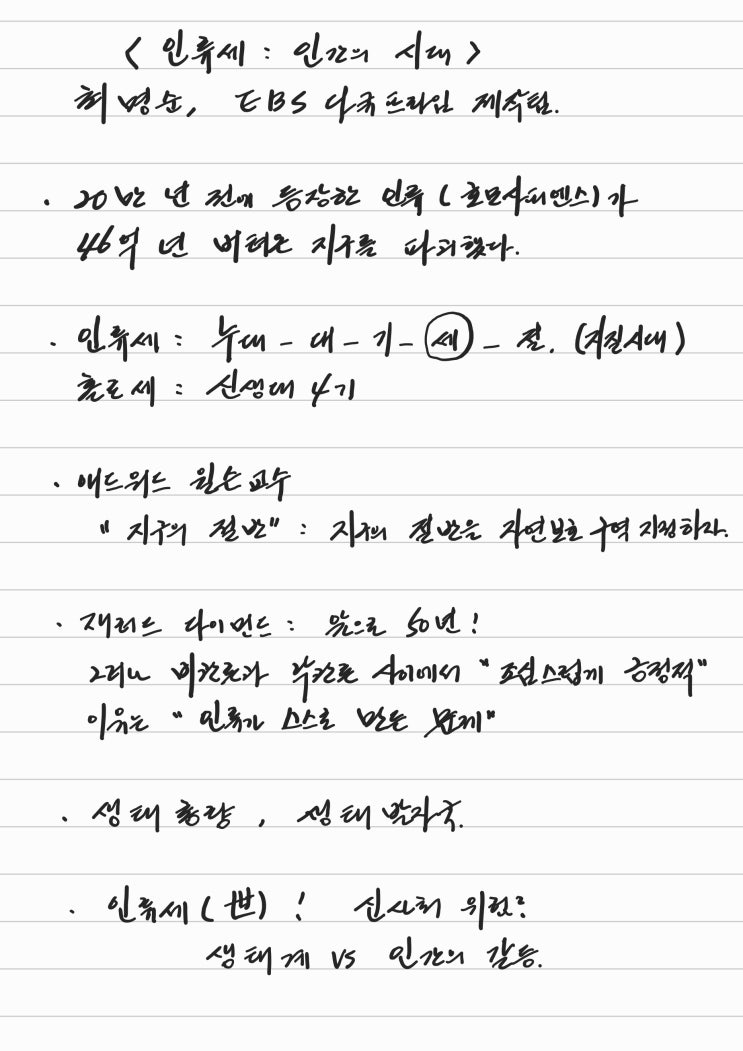 < 인류세 : 인간의 시대 >
최평순, EBS 다큐프라임 제작팀.
· 20만 년 전에 등장한 인류 ( 호모사피엔스)가
46억 년 버텨온 지구를 파괴했다.
· 인류세 : 누대 - 대 - 기 - 세 - 절. (지질시대)
홀로세 : 신생대 4기
· 에드워드 윌슨 교수
"지구의 절반" : 지구의 절반을 자연보호 구역 지정하자.
· 재러드 다이먼드 : 앞으로 50년!
그러나 비관론과 낙관론 사이에서 "조심스럽게 긍정적"
이유는 "인류가 스스로 만든 문제"
· 생태 총량 , 생태 발자국.
· 인류세 (世) ! 신사회 위험?
생태계 vs 인간의 갈등.